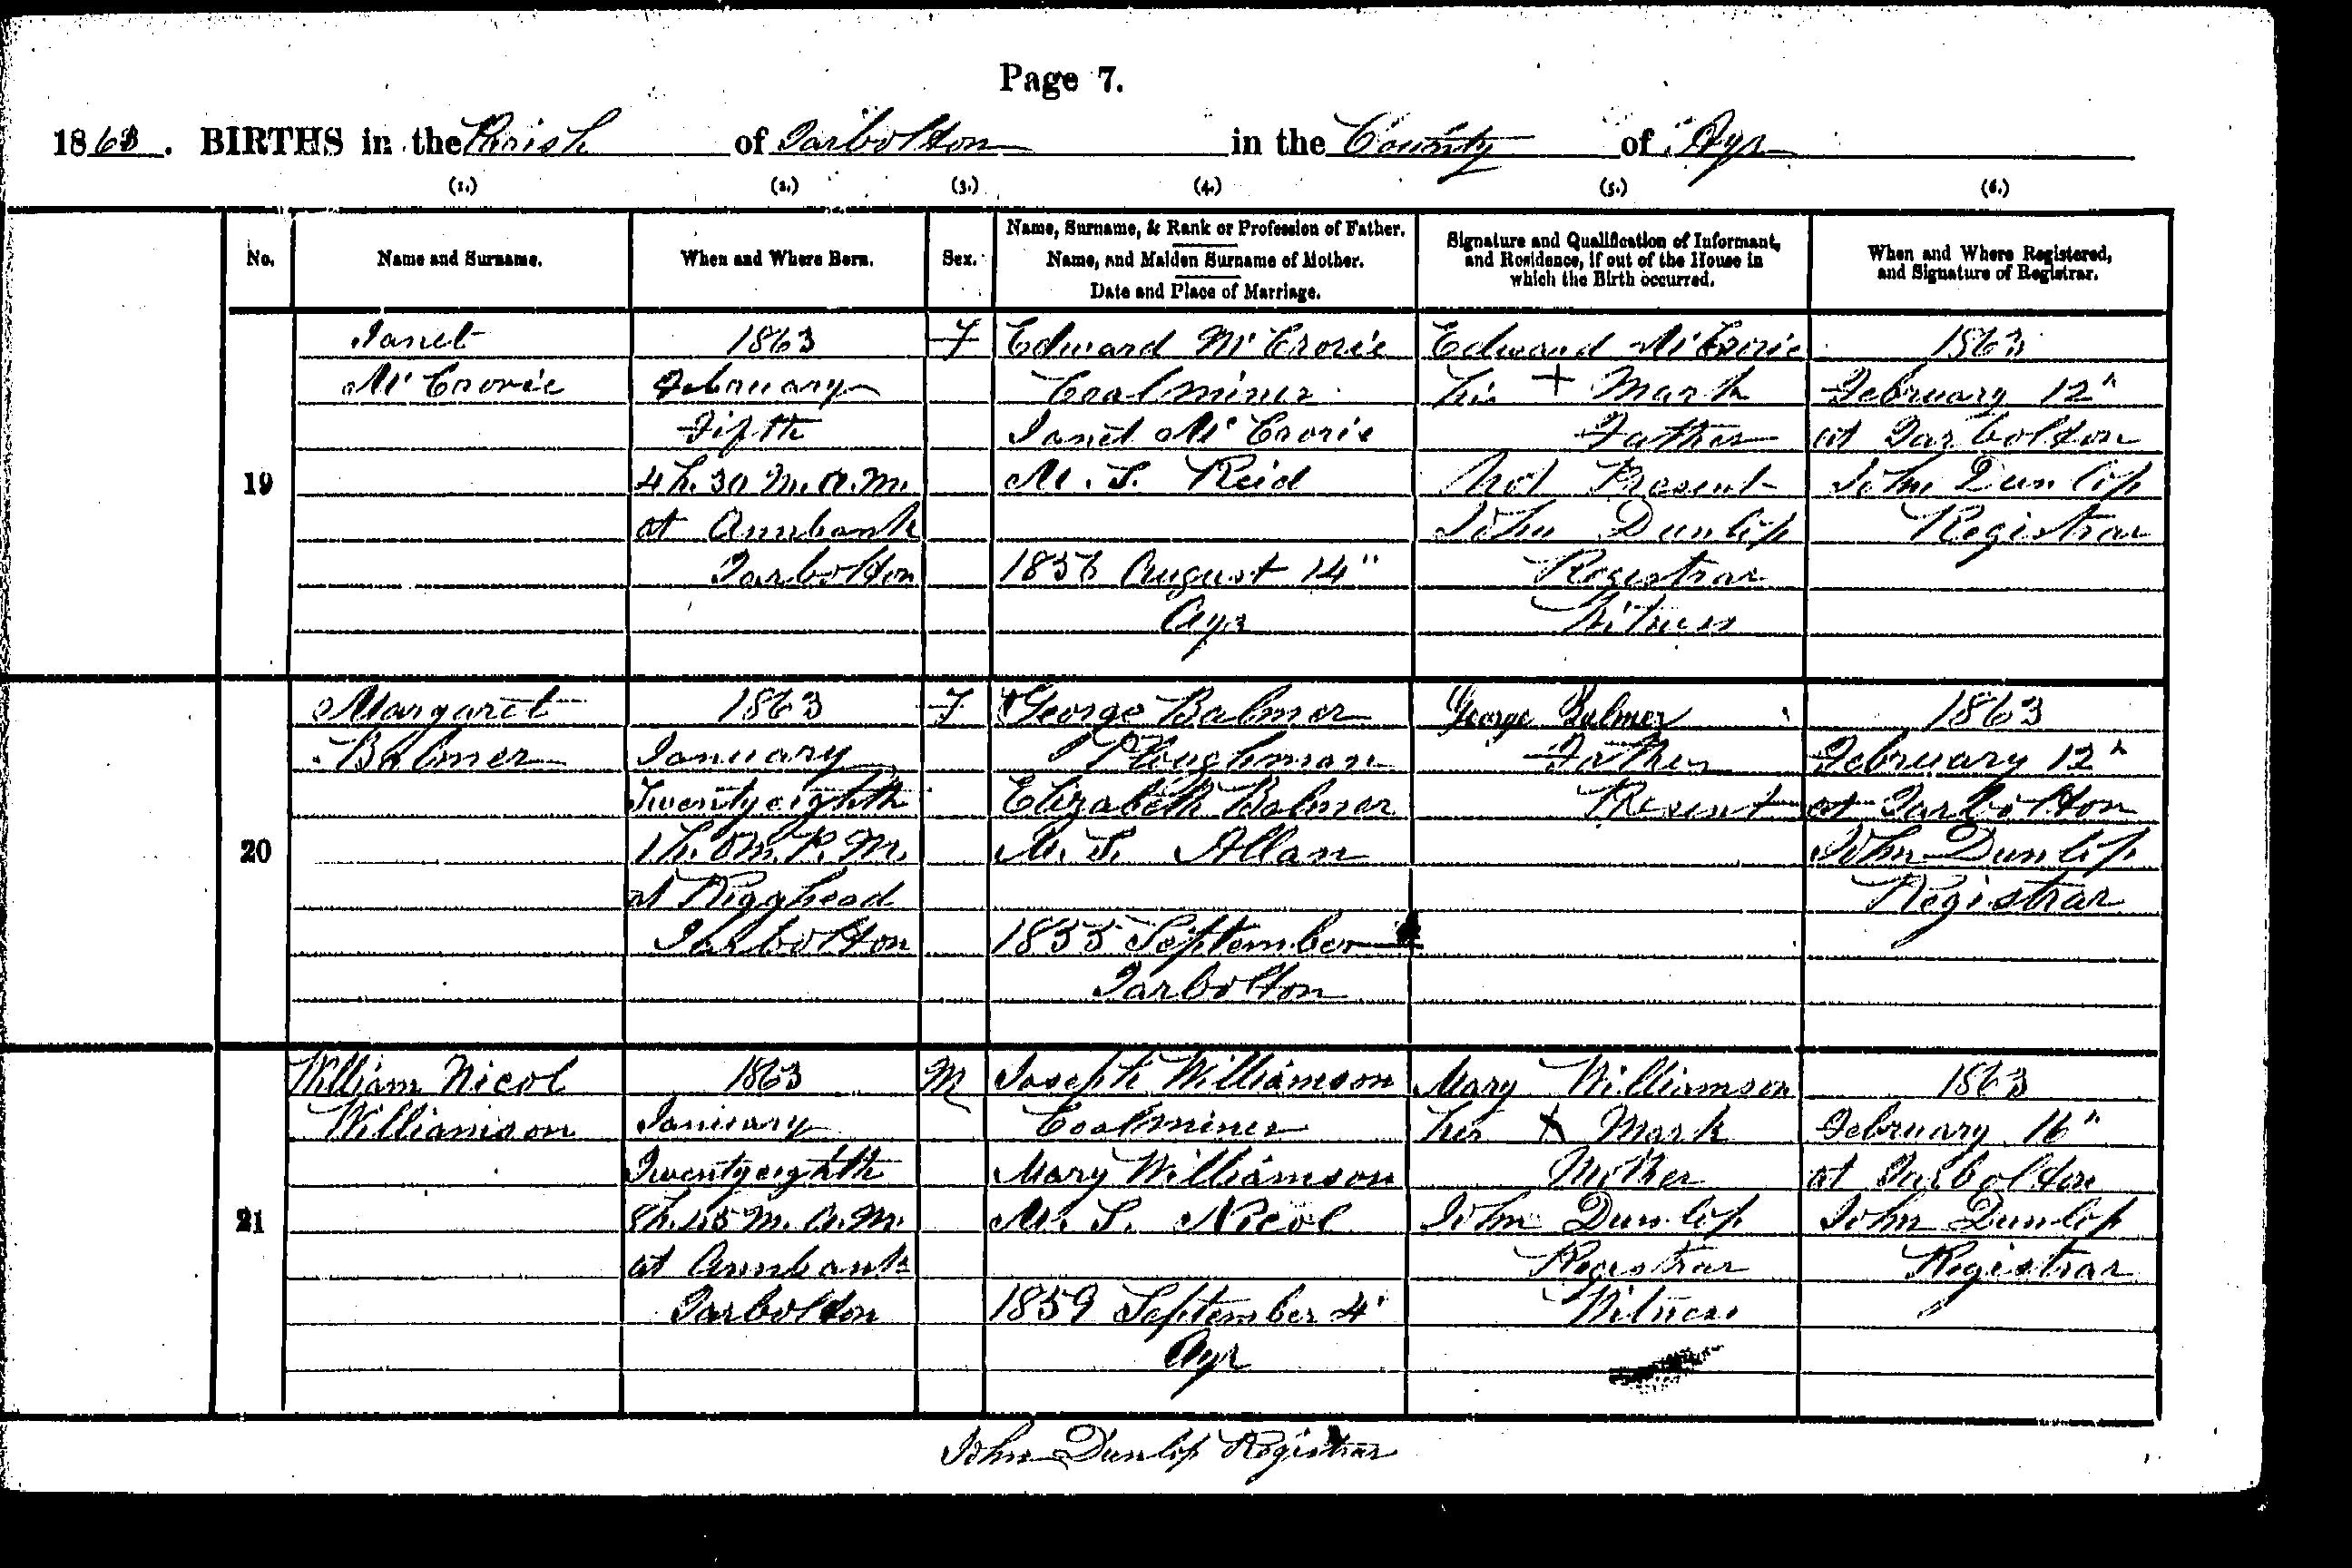 Page 7.
1863. BIRTHS in the Parish of Tarbolton in the County of Ayr
(1.) (2.) (3.) (4.) (5.) (6.)
No.
Name and Surname.
When and Where Born.
Sex.
Name, Surname, & Rank or Profession of Father.
Name, and Maiden Surname of Mother.
Date and Place of Marriage.
Signature and Qualification of Informant,
and Residence, if out of the House in
which the Birth occurred.
When and Where Registered,
and Signature of Registrar.
19
Janet
McCrorie
1863
February
Fifth
4h. 30 m. A.M.
at Annbank
Tarbolton
F
Edward McCrorie
Coalminer
Janet McCrorie
M. S. Reid
August 14"
Ayr
Edward McCrorie
his + Mark
Father
Not Present
John Dunlop
Registrar
Witness
1863
February 12"
at Tarbolton
John Dunlop
Registrar
20
Margaret
Balmer
1863
January
Twenty eighth
1h. 0m. P.M.
at Rigghead
Tarbolton
F
George Balmer
Ploughman
Elizabeth Balmer
M. S. Allan
1855 September
Tarbolton
George Balmer
Father
Present
1863
February 12"
at Tarbolton
John Dunlop
Registrar
21
William Nicol
Williamson
1863
January
Twenty eighth
8h. 45 m. A.M.
at Annbank
Tarbolton
M
Joseph Williamson
Coalminer
Mary Williamson
M. S. Nicol
1859 September 4"
Ayr
Mary Williamson
her x Mark
Mother
John Dunlop
Registrar
Witness
1863
February 16"
at Tarbolton
John Dunlop
Registrar
John Dunlop Registrar